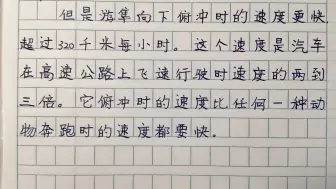 但是游隼向下俯冲时的速度更快,
超过320千米每小时。这个速度是汽车
在高速公路上飞速行驶时速度的两到
三倍。它俯冲时的速度比任何一种动
物奔跑时的速度都要快。